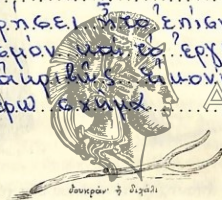 ρησει ὑπὸ ἐπίσ
σμὸν καὶ τὸ ἔργ
ἀκριβὴς εἰκον
ρω σχῆμα
δουκράν' ἢ διχάλι